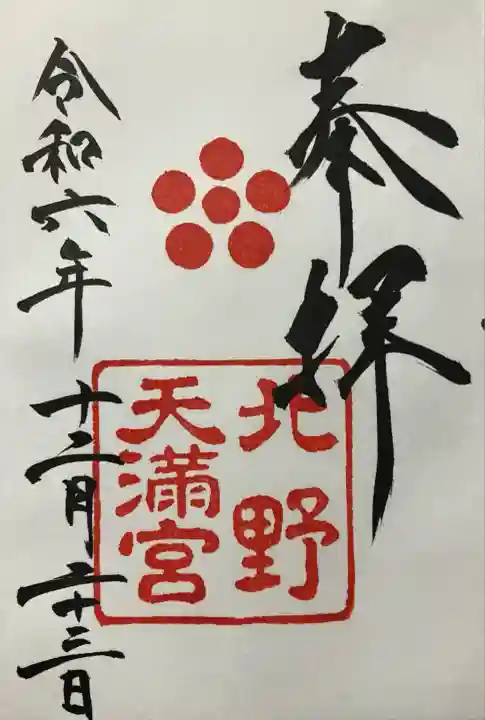 奉拝
北野
天満宮
令和六年
十二月二十三日